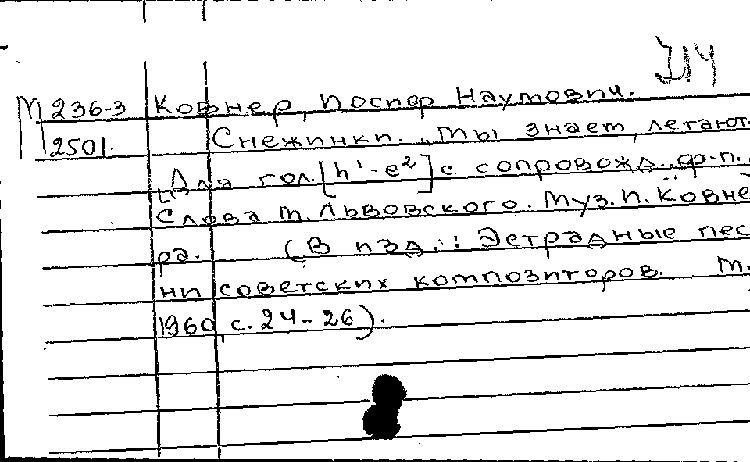 М 236-3 Ковнер, Иосиф Наумович.
2501. Снежинки. „Мы знаем, летают.
[Для гол. [h¹-e²] с сопровожд. ф-п.
Слова М. Львовского. Муз. И. Ковне
ра. (В изд.: Эстрадные пес
ни советских композиторов. М.
1960, с. 24-26).